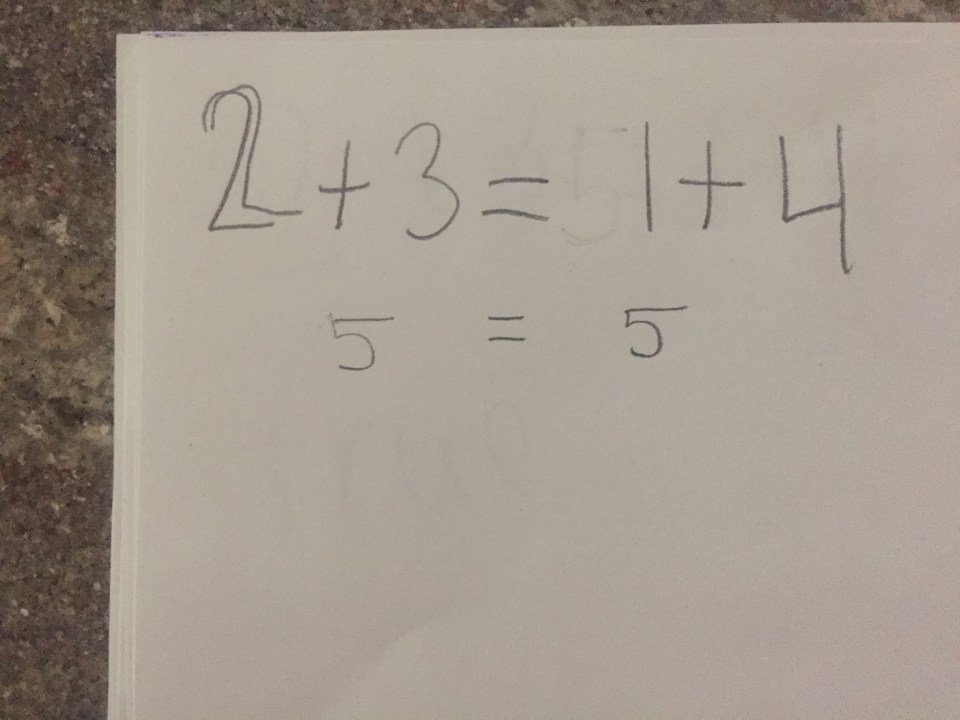 2+3=1+4
5 = 5